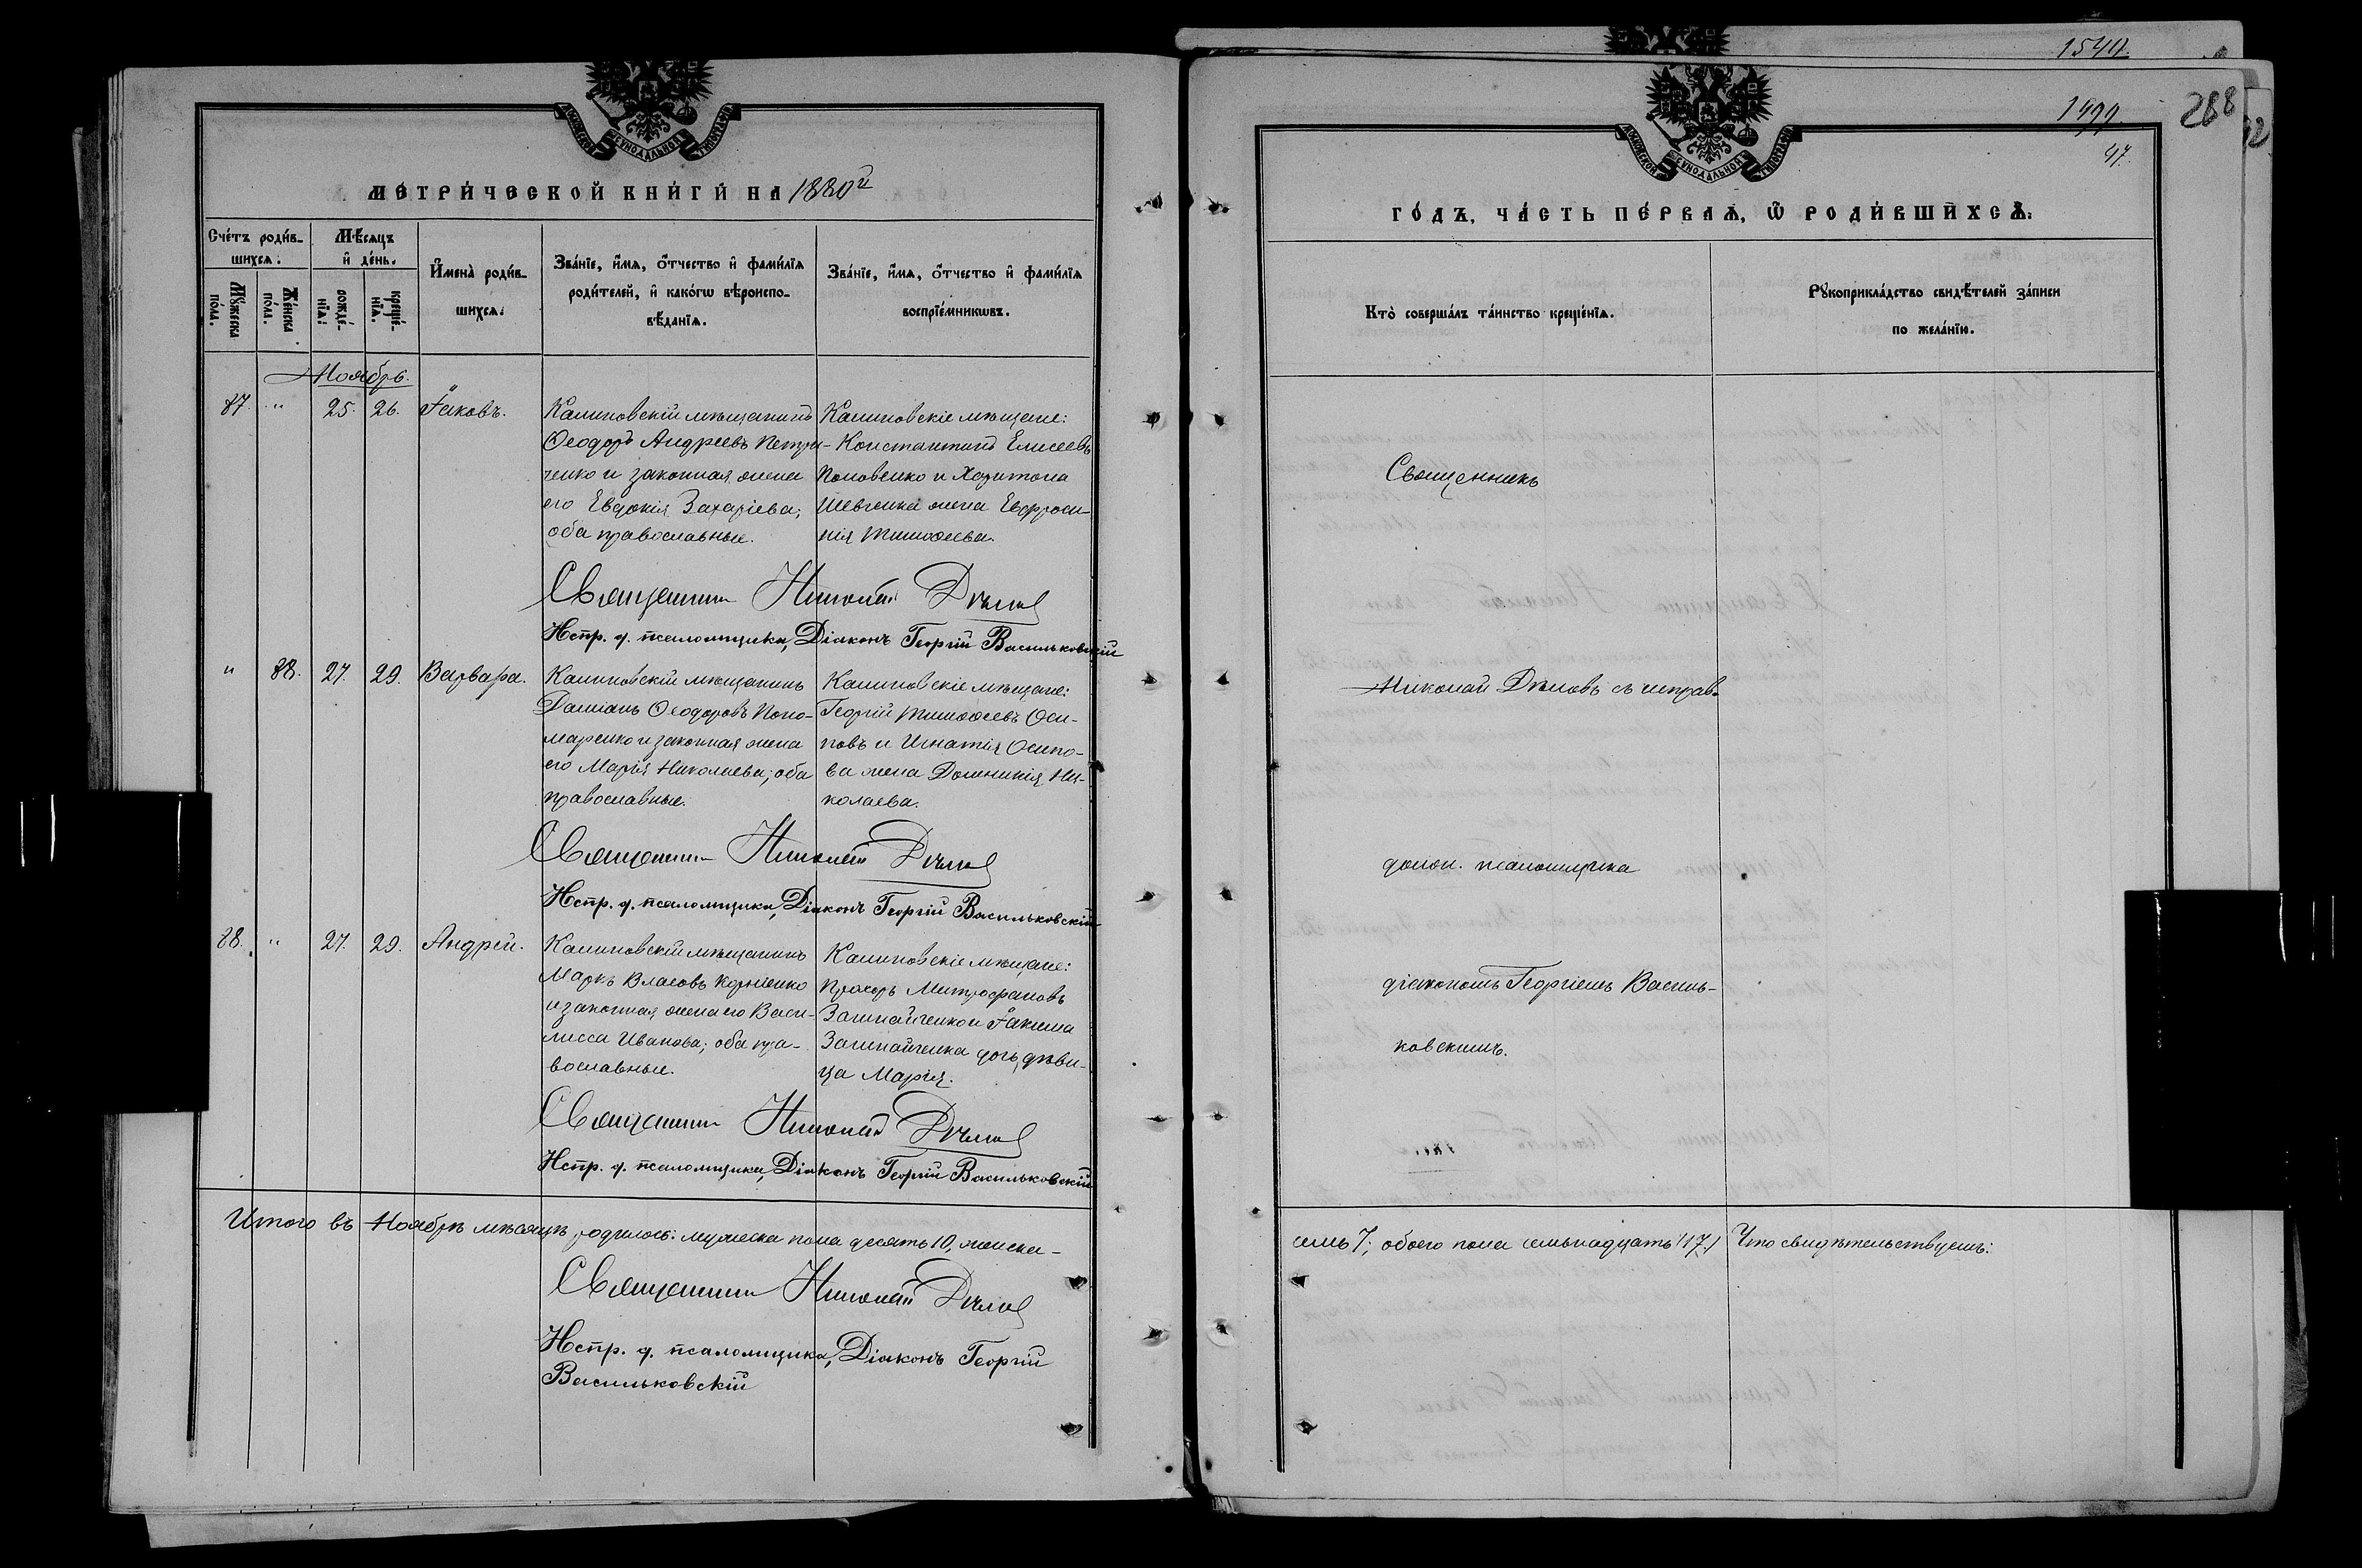 МОСКОВСКОЙ СѴНОДАЛЬНОЙ ТИПОГРАФІИ
МЕТРИ́ЧЕСКОЙ КНИ́ГИ НА 1880й
Сче́тъ роди́в-
шихсѧ.
Мꙋ́жеска
по́ла.
Же́нска
по́ла.
Мѣ́сѧцъ
и҆ де́нь.
рожде́-
нїѧ.
креще́-
нїѧ.
И҆мена̀ роди́в-
шихсѧ.
Зва́нїе, и҆́мѧ, ѻ҆́тчество и҆ фами́лїѧ
роди́телей, и҆ како́гѡ вѣроиспо-
вѣ́данїѧ.
Зва́нїе, и҆́мѧ, ѻ҆́тчество и҆ фами́лїѧ
воспрїе́мникѡвъ.
Ноябрь.
87. " 25. 26. Іаковъ.
Калиновскій мѣщанинъ
Ѳеодоръ Андреевъ Петри-
ченко и законная жена
его Евдокія Захаріева;
оба православные.
Калиновскіе мѣщане:
Константинъ Елисеевъ
Поповенко и Харитона
Шевченка жена Евфроси-
нія Тимоѳеева.
Священникъ Николай Дѣловъ
Испр. д. псаломщика, Діаконъ Георгій Васильковскій
" 88. 27. 29. Варвара.
Калиновскій мѣщанинъ
Даміанъ Ѳеодоровъ Поно-
маренко и законная жена
его Марія Николаева; оба
православные.
Калиновскіе мѣщане:
Георгій Тимоѳеевъ Оси-
повъ и Игнатія Осипо-
ва жена Домникія Ни-
колаева.
Священникъ Николай Дѣловъ
Испр. д. псаломщика, Діаконъ Георгій Васильковскій
88. " 27. 29. Андрей.
Калиновскій мѣщанинъ
Маркъ Власовъ Корніенко
и законная жена его Васи-
лисса Иванова; оба пра-
вославные.
Калиновскіе мѣщане:
Прохоръ Митрофановъ
Загинайченко и Іакима
Загинайченка дочь, дѣви-
ца Марія.
Священникъ Николай Дѣловъ
Испр. д. псаломщика, Діаконъ Георгій Васильковскій
Итого въ Ноябрѣ мѣсяцѣ родилось: мужеска пола десять 10, женска-
Священникъ Николай Дѣловъ
Испр. д. псаломщика, Діаконъ Георгій
Васильковскій
1540.
1499.
288
47.
МОСКОВСКОЙ СѴНОДАЛЬНОЙ ТИПОГРАФІИ
ГО́ДЪ, ЧА́СТЬ ПЕ́РВАѦ, Ѽ РОДИ́ВШИХСѦ.
Кто̀ соверша́лъ та́инство креще́нїѧ.
Рꙋкоприкла́дство свидѣ́телей за́писи
по жела́нїю.
Священникъ
Николай Дѣловъ съ исправ.
должн. псаломщика
діакономъ Георгіемъ Василь-
ковскимъ.
семь 7; обоего пола семьнадцать /17./ Что свидѣтельствуемъ: